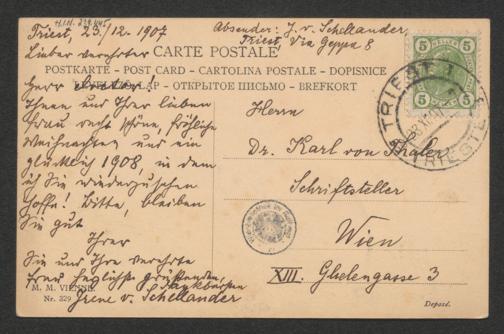 H.I.N. 229.445
Triest, 23./12. 1907
Absender: J. v. Schellander,
Triest, Via Geppa 8
Lieber verehrter
CARTE POSTALE
POSTKARTE – POST CARD – CARTOLINA POSTALE – DOPISNICE
Herr
ОТКРЫТОЕ ПИСЬМО – BREFKORT
Ihnen und Ihrer lieben
Frau recht schöne, fröhliche
Weihnachten und ein
glücklich 1908, in dem
ich Sie wiederzusehen
hoffe! Bitte, bleiben
Sie gut
Ihrer
Sie und Ihre verehrte
Frau grüßenden, dankbarsten
Irene v. Schellander
Herrn
Dr. Karl von Thaler
Schriftsteller
Wien
XIII. Gbelengasse 3
5 5
5 5
TRIEST 1
TRIESTE 1
M. M. VIENNE
Nr. 329
Deposé.